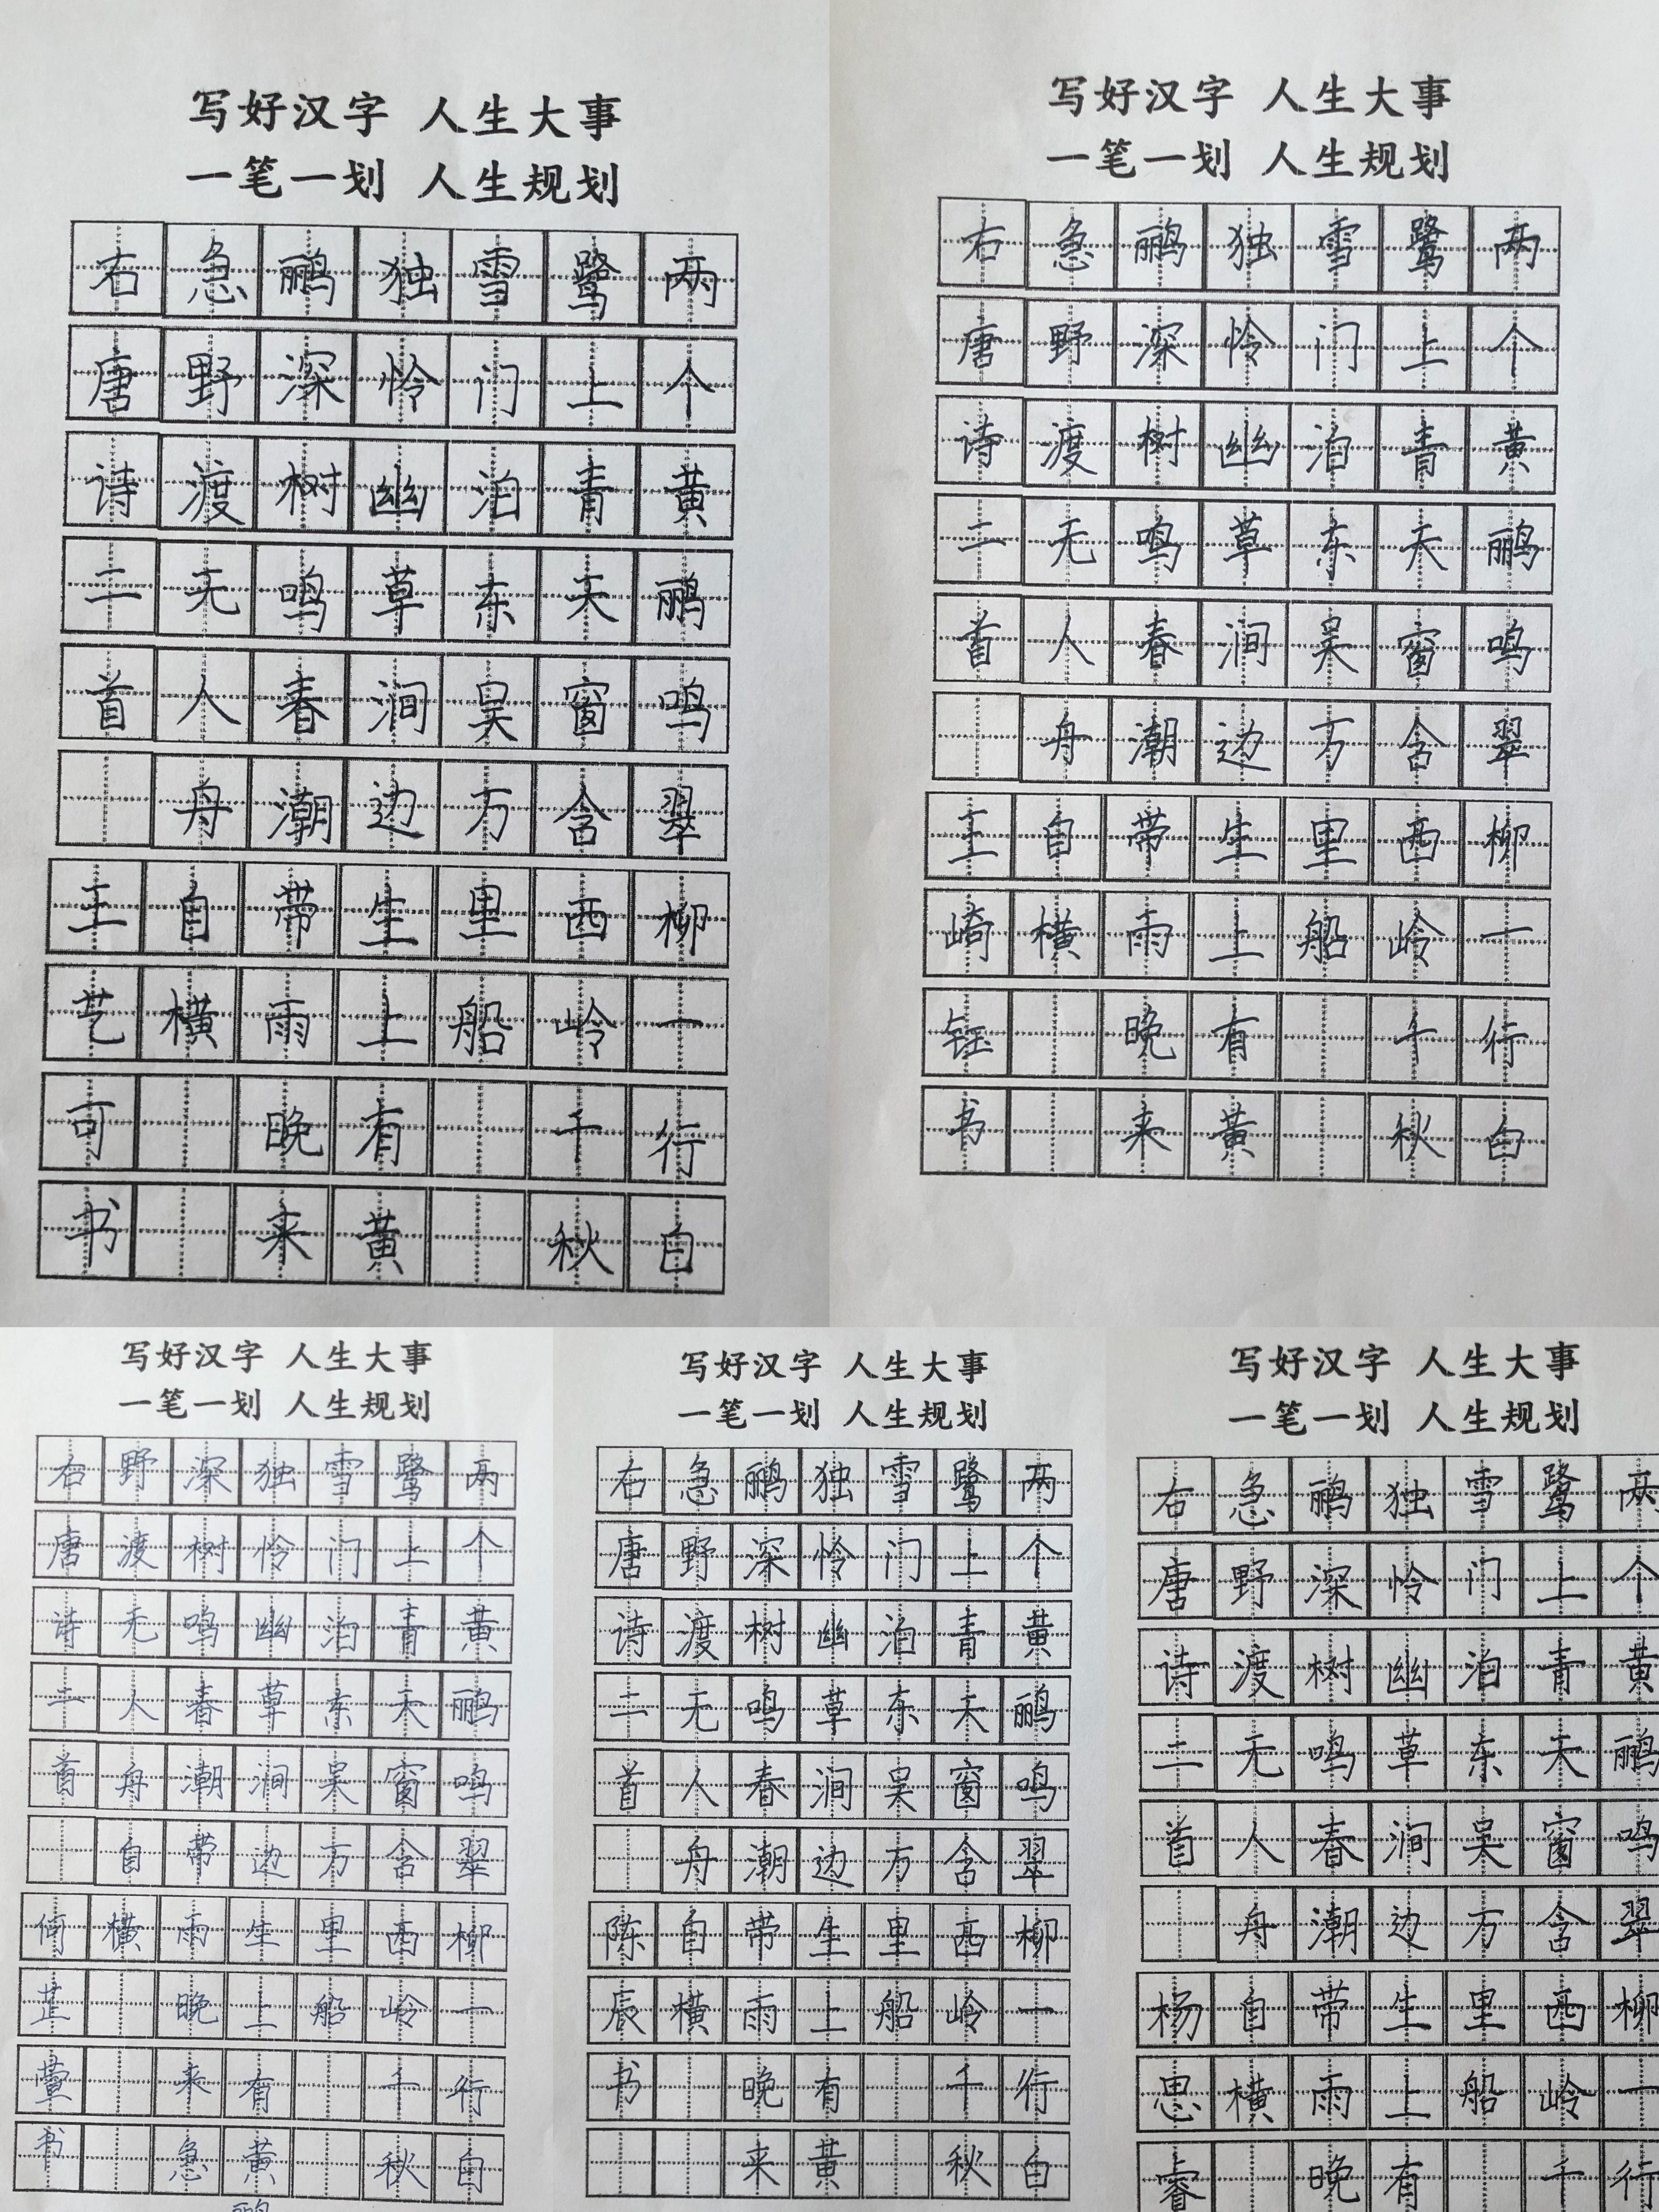 写好汉字 人生大事
一笔一划 人生规划
两个黄鹂鸣翠柳一行白
鹭上青天窗含西岭千秋
雪门泊东吴万里船
独怜幽草涧边生上有黄
鹂深树鸣春潮带雨晚来
急野渡无人舟自横
右唐诗二首 王艺可书
写好汉字 人生大事
一笔一划 人生规划
两个黄鹂鸣翠柳一行白
鹭上青天窗含西岭千秋
雪门泊东吴万里船
独怜幽草涧边生上有黄
鹂深树鸣春潮带雨晚来
急野渡无人舟自横
右唐诗二首 王崎钰书
写好汉字 人生大事
一笔一划 人生规划
两个黄鹂鸣翠柳一行白
鹭上青天窗含西岭千秋
雪门泊东吴万里船
独怜幽草涧边生上有黄鹂
深树鸣春潮带雨晚来急
野渡无人舟自横
右唐诗二首 何芷萱书
写好汉字 人生大事
一笔一划 人生规划
两个黄鹂鸣翠柳一行白
鹭上青天窗含西岭千秋
雪门泊东吴万里船
独怜幽草涧边生上有黄
鹂深树鸣春潮带雨晚来
急野渡无人舟自横
右唐诗二首 陈辰书
写好汉字 人生大事
一笔一划 人生规划
两个黄鹂鸣翠柳一行
鹭上青天窗含西岭千
雪门泊东吴万里船
独怜幽草涧边生上有
鹂深树鸣春潮带雨晚
急野渡无人舟自横
右唐诗二首 杨思睿